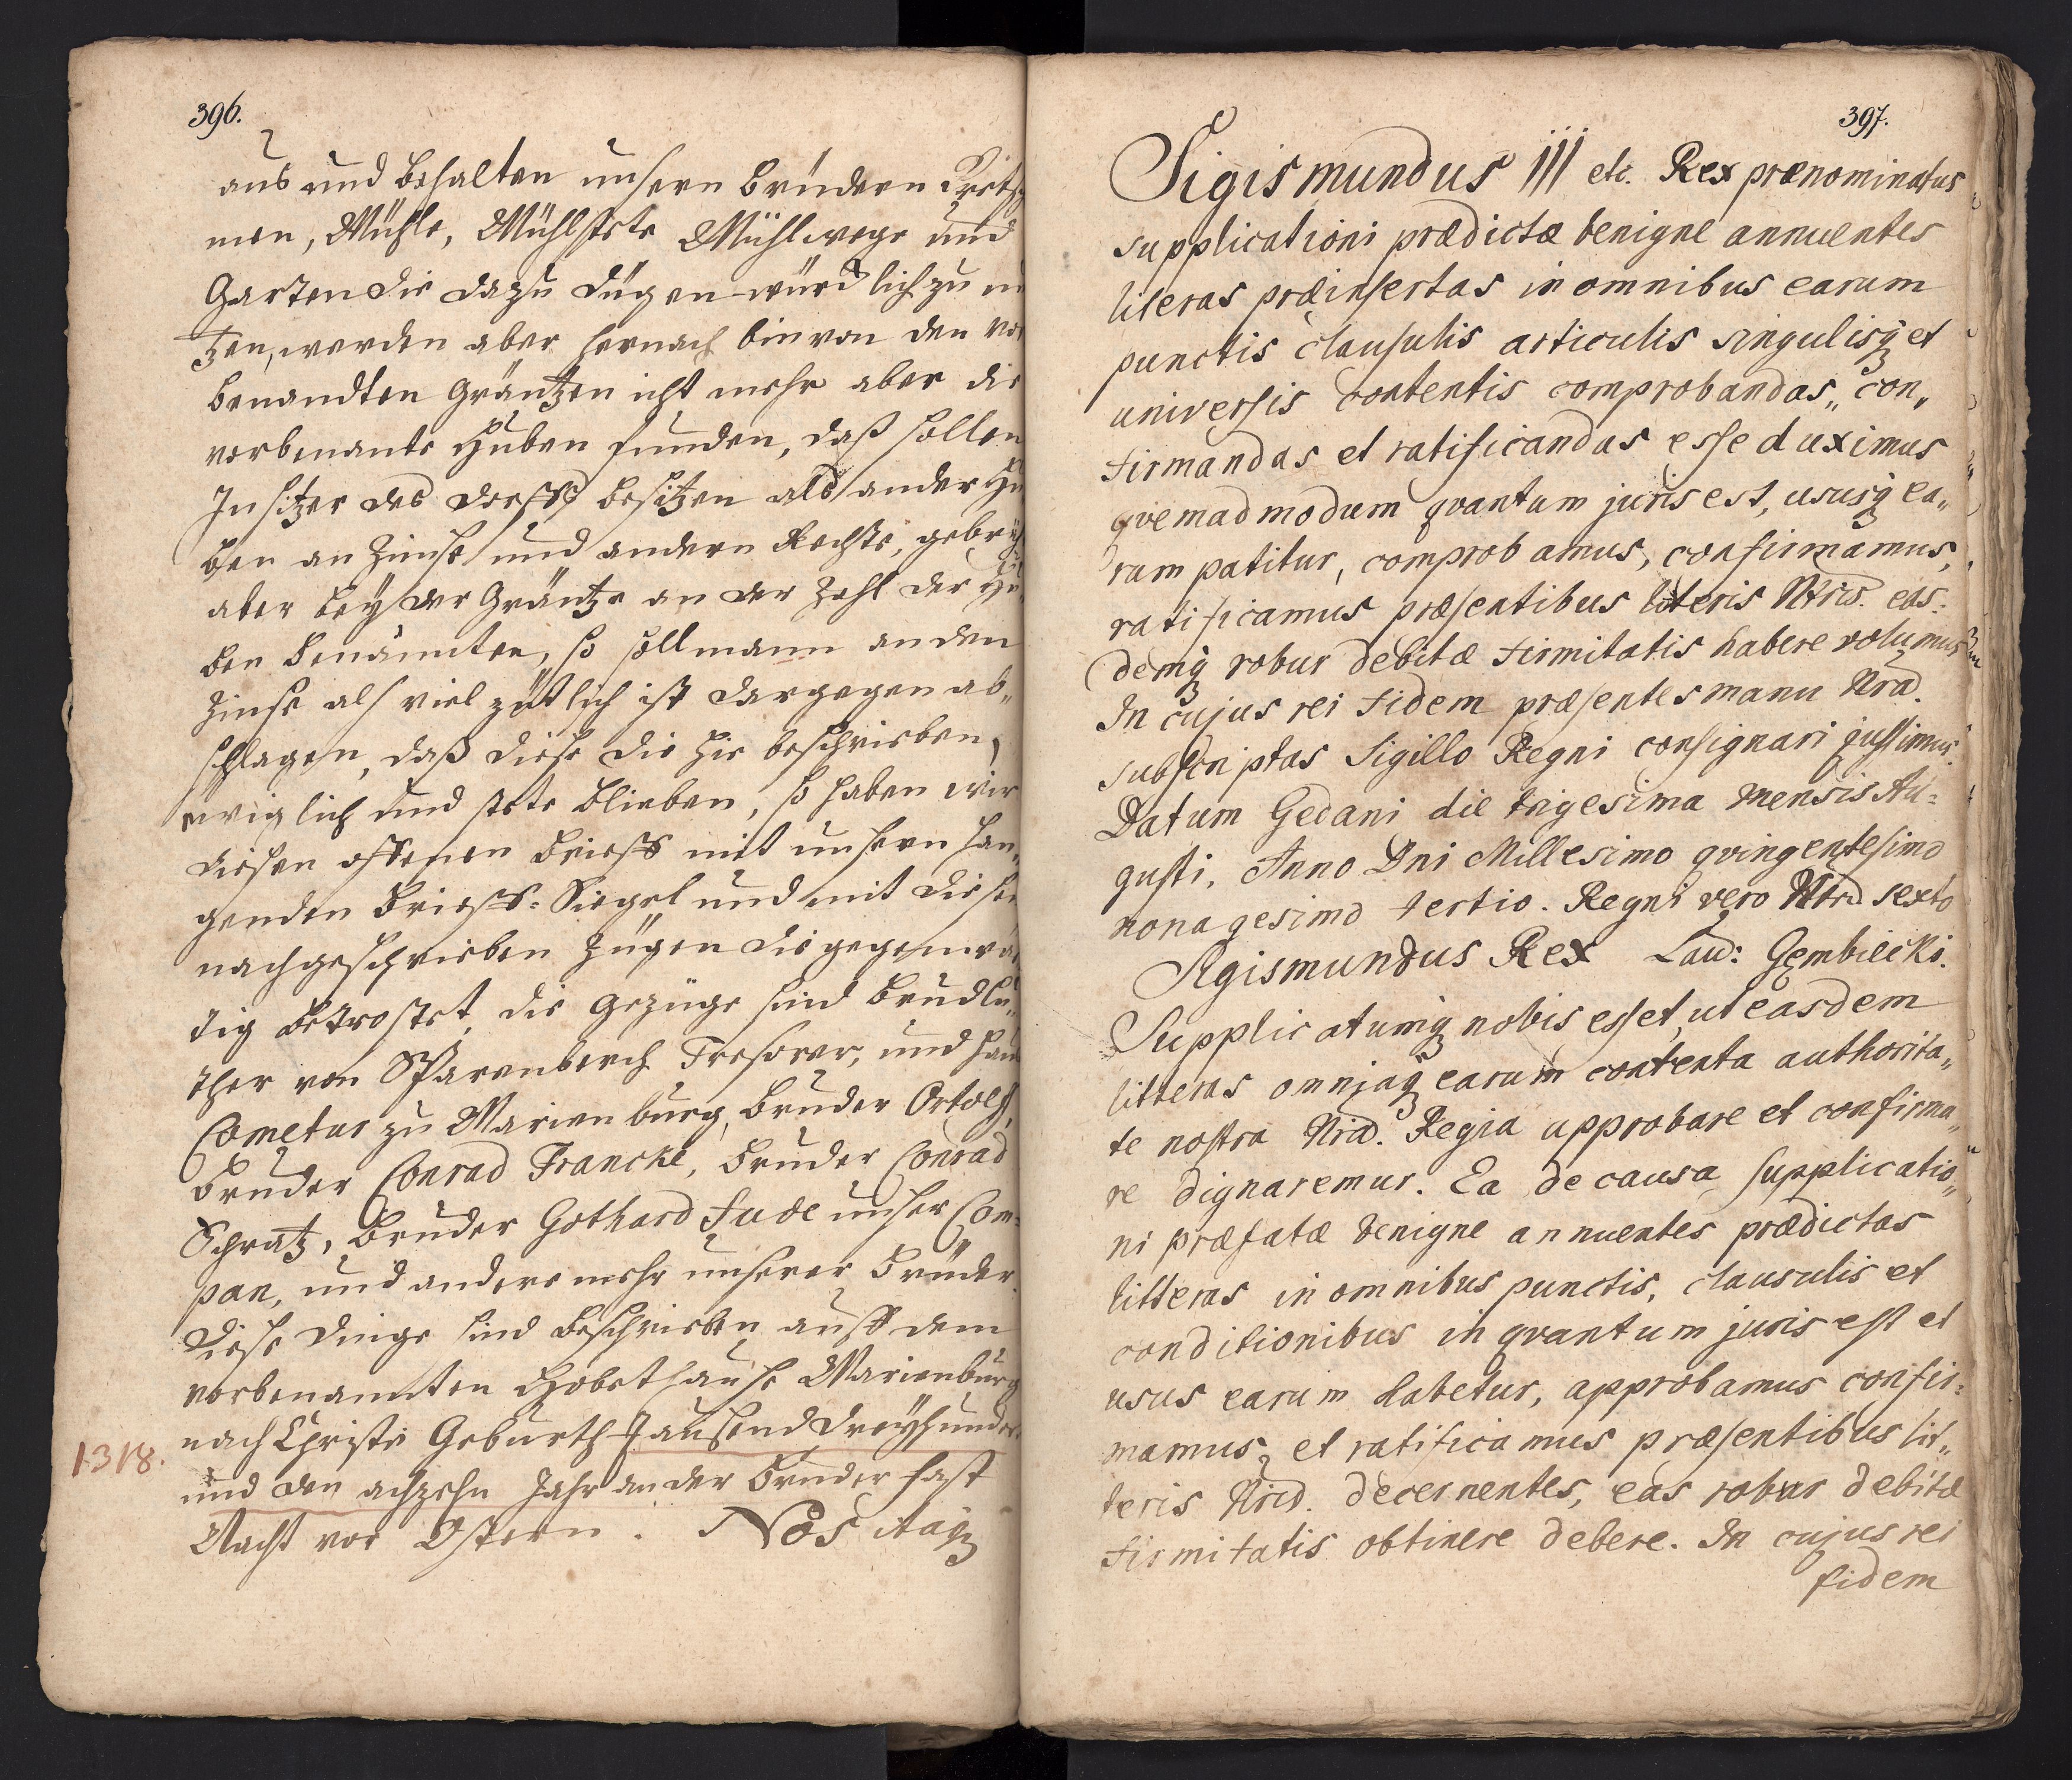 396.
aus und behalten unsern Brüdern
men, Mühle, Mühlstete Mühlwege und
Garten die dazu dügen würdlich zu
tzen, werden aber hernach binnen den
benandten Gräntzen icht mehr aber die
vorbenante Huben funden, daß sollen
Insitzer des dorffs besitzen als ander
ben an Zinse und andern Rechte,
aber bey der Gräntze an der Zahl der
ben benannten, so soll mann an dem
Zinse als viel zütlich ist dargegen ab„
schlagen, daß diese die hie beschrieben
ewiglich und stete blieben, so haben wir
diesen offenen brieff mit unsern han„
genden Brieff-Siegel und mit diesen
nachgeschrieben Zügen die
tig betrostet, die Gezüge sind
ther von Sparenberch Tresorer, und
Cometur zu Marienburg, Bruder Ortolf,
Bruder Conrad Francke, Bruder Conrad
Schratz, Bruder Gothard Fude unser Com„
pan, und andere mehr unserer Brüder.
Diese Dinge sind beschrieben auff dem
vorbenannten Hobethause Marienburg
nach Christi Geburth Tausend dreyhundert
1318.
und den achzehn Jahr an der Bruder Fast
Nacht vor Ostern. Nos itaq
397.
Sigismundus III etc. Rex prænominatus
supplicationi prædictæ benigne annuentes
literas præinsertas in omnibus earum
punctis clausulis articulis singulisq et
universis contentis comprobandas„ con„
firmandas et ratificandas esse duximus
qvemadmodum qvantum juris est, ususq ea„
rum patitur, comprobamus, confirmamus,
ratificamus præsentibus literis Ntris. eas:
demq robur debitæ firmitatis habere volumus
In cujus rei fidem præsentes manu Nra.
subscriptas Sigillo Regni consignari jussimus.
Datum Gedani die trigesima mensis Au=
gusti, Anno Dni Millesimo qvingentesimo
nonagesimo tertio. Regni vero Ntri sexto
Sigismundus Rex Laur: Gembilcki.
Supplicatumq nobis esset, ut easdem
litteras omniaq earum contenta authorita„
te nostra Nra. Regia approbare et confirma„
re dignaremur. Ea de causa supplicatio„
ni præfatæ benigne annuentes prædictas
litteras in omnibus punctis, clausulis et
conditionibus in qvantum juris est et
usus earum habetur, approbamus confir=
mamus, et ratificamus præsentibus lit„
teris Nris. decernentes, eas robur debitæ
firmitatis obtinere debere. In cujus rei
fidem